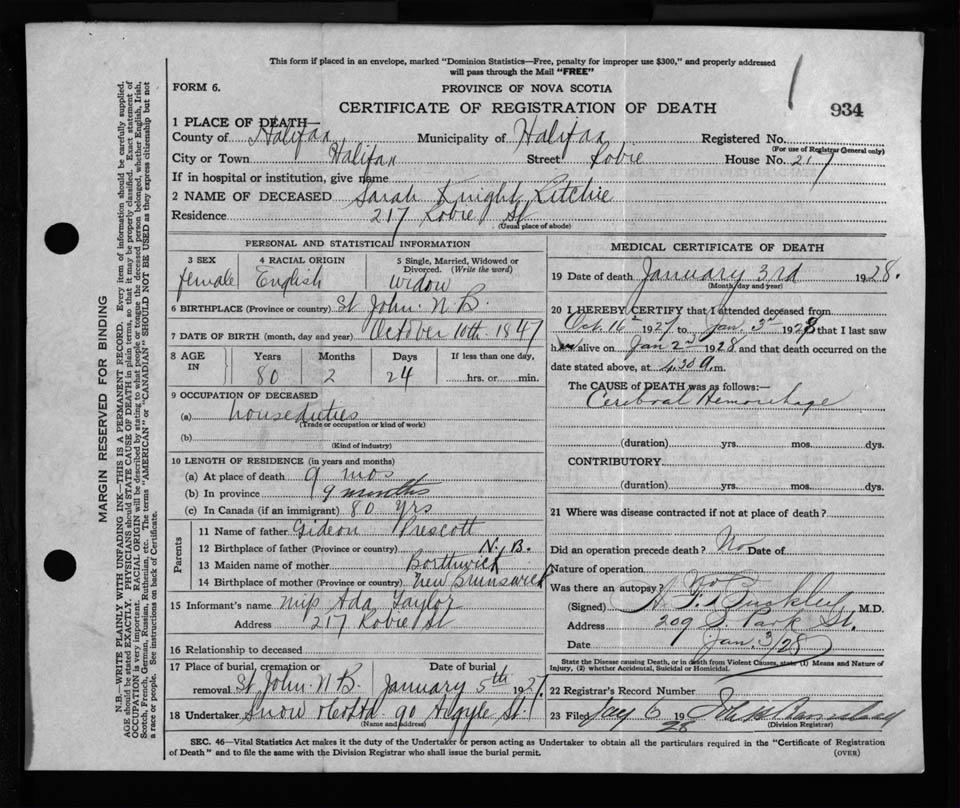 This form if placed in an envelope, marked "Dominion Statistics—Free, penalty for improper use $300," and properly addressed
will pass through the Mail "FREE"
FORM 6.
PROVINCE OF NOVA SCOTIA
CERTIFICATE OF REGISTRATION OF DEATH
934
1 PLACE OF DEATH—
County of Halifax Municipality of Halifax Registered No.
(For use of Registrar General only)
City or Town Halifax Street Robie House No. 217
If in hospital or institution, give name
2 NAME OF DECEASED Sarah Knight Ritchie
Residence 217 Robie St
(Usual place of abode)
PERSONAL AND STATISTICAL INFORMATION
3 SEX 4 RACIAL ORIGIN 5 Single, Married, Widowed or
Divorced. (Write the word)
female English widow
6 BIRTHPLACE (Province or country) St John. N B.
7 DATE OF BIRTH (month, day and year) October 10th. 1847
8 AGE IN Years Months Days If less than one day,
80 2 24 hrs. or min.
9 OCCUPATION OF DECEASED
(a) house duties
(Trade or occupation or kind of work)
(b)
(Kind of industry)
10 LENGTH OF RESIDENCE (in years and months)
(a) At place of death 9 mos
(b) In province 9 months
(c) In Canada (if an immigrant) 80 yrs
Parents
11 Name of father Gideon Prescott
12 Birthplace of father (Province or country) N. B.
13 Maiden name of mother Borthwick
14 Birthplace of mother (Province or country) New Brunswick
15 Informant's name Miss Ada Taylor
Address 217 Robie St
16 Relationship to deceased
17 Place of burial, cremation or Date of burial
removal St John. N B. January 5th 1927.
18 Undertaker Snow & Co Ltd. 90 Argyle St.
(Name and address)
MEDICAL CERTIFICATE OF DEATH
19 Date of death January 3rd 1928.
(Month, day and year)
20 I HEREBY CERTIFY that I attended deceased from
Oct. 16th 1927 to Jan. 3rd 1928 that I last saw
her alive on Jan 2nd 1928 and that death occurred on the
date stated above, at 4.30 a. m.
The CAUSE of DEATH was as follows:—
Cerebral Hemorrhage
(duration) yrs. mos. dys.
CONTRIBUTORY
(duration) yrs. mos. dys.
21 Where was disease contracted if not at place of death?
Did an operation precede death? No Date of
Nature of operation
Was there an autopsy? No
(Signed) Buckley M.D.
Address 209 S. Park St.
Date Jan. 3/28
State the Disease causing Death, or in death from Violent Causes, state (1) Means and Nature of
Injury, (2) whether Accidental, Suicidal or Homicidal.
22 Registrar's Record Number
23 Filed Jany 6 19 28
(Division Registrar)
SEC. 46—Vital Statistics Act makes it the duty of the Undertaker or person acting as Undertaker to obtain all the particulars required in the "Certificate of Registration
of Death" and to file the same with the Division Registrar who shall issue the burial permit.
(OVER)
MARGIN RESERVED FOR BINDING
N.B.—WRITE PLAINLY WITH UNFADING INK—THIS IS A PERMANENT RECORD. Every item of information should be carefully supplied.
AGE should be stated EXACTLY. PHYSICIANS should STATE CAUSE OF DEATH in plain terms, so that it may be properly classified. Exact statement of
OCCUPATION is very important. RACIAL ORIGIN will be described by stating to what people or tongue the deceased person belonged, whether English, Irish,
Scotch, French, German, Russian, Ruthenian, etc. The terms "AMERICAN" or "CANADIAN" SHOULD NOT BE USED as they express citizenship but not
a race or people. See instructions on back of Certificate.